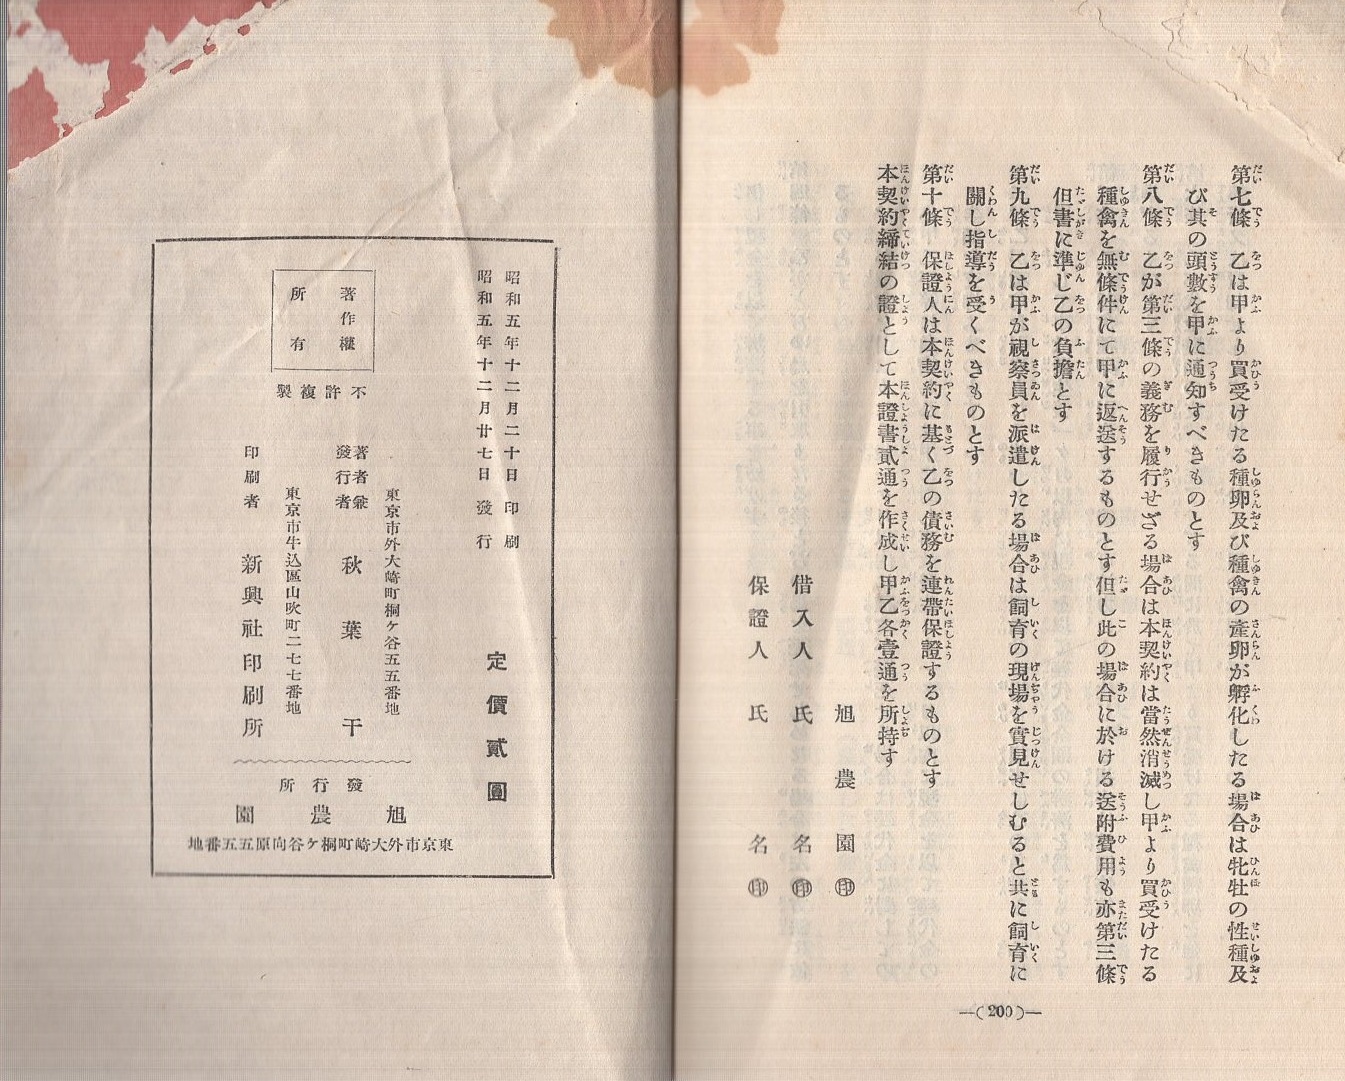 第七條　乙は甲より買受けたる種卵及び種禽の産卵が孵化したる場合は牝牡の性種及
び其の頭數を甲に通知すべきものとす
第八條　乙が第三條の義務を履行せざる場合は本契約は當然消滅し甲より買受けたる
種禽を無條件にて甲に返送するものとす但し此の場合に於ける送附費用も亦第三條
但書に準じ乙の負擔とす
第九條　乙は甲が視察員を派遣したる場合は飼育の現場を實見せしむると共に飼育に
關し指導を受くべきものとす
第十條　保證人は本契約に基く乙の債務を連帶保證するものとす
本契約締結の證として本證書貳通を作成し甲乙各壹通を所持す
旭農園㊞
借入人　氏名㊞
保證人　氏名㊞
―(200)―
昭和五年十二月二十日印刷
昭和五年十二月廿七日發行
定價貳圓
著作權
所有
不許複製
東京市外大崎町桐ケ谷五五番地
著者兼
發行者　秋葉干
東京市牛込區山吹町二七七番地
印刷者　新興社印刷所
發行所
旭農園
東京市外大崎町桐ケ谷向原五五番地